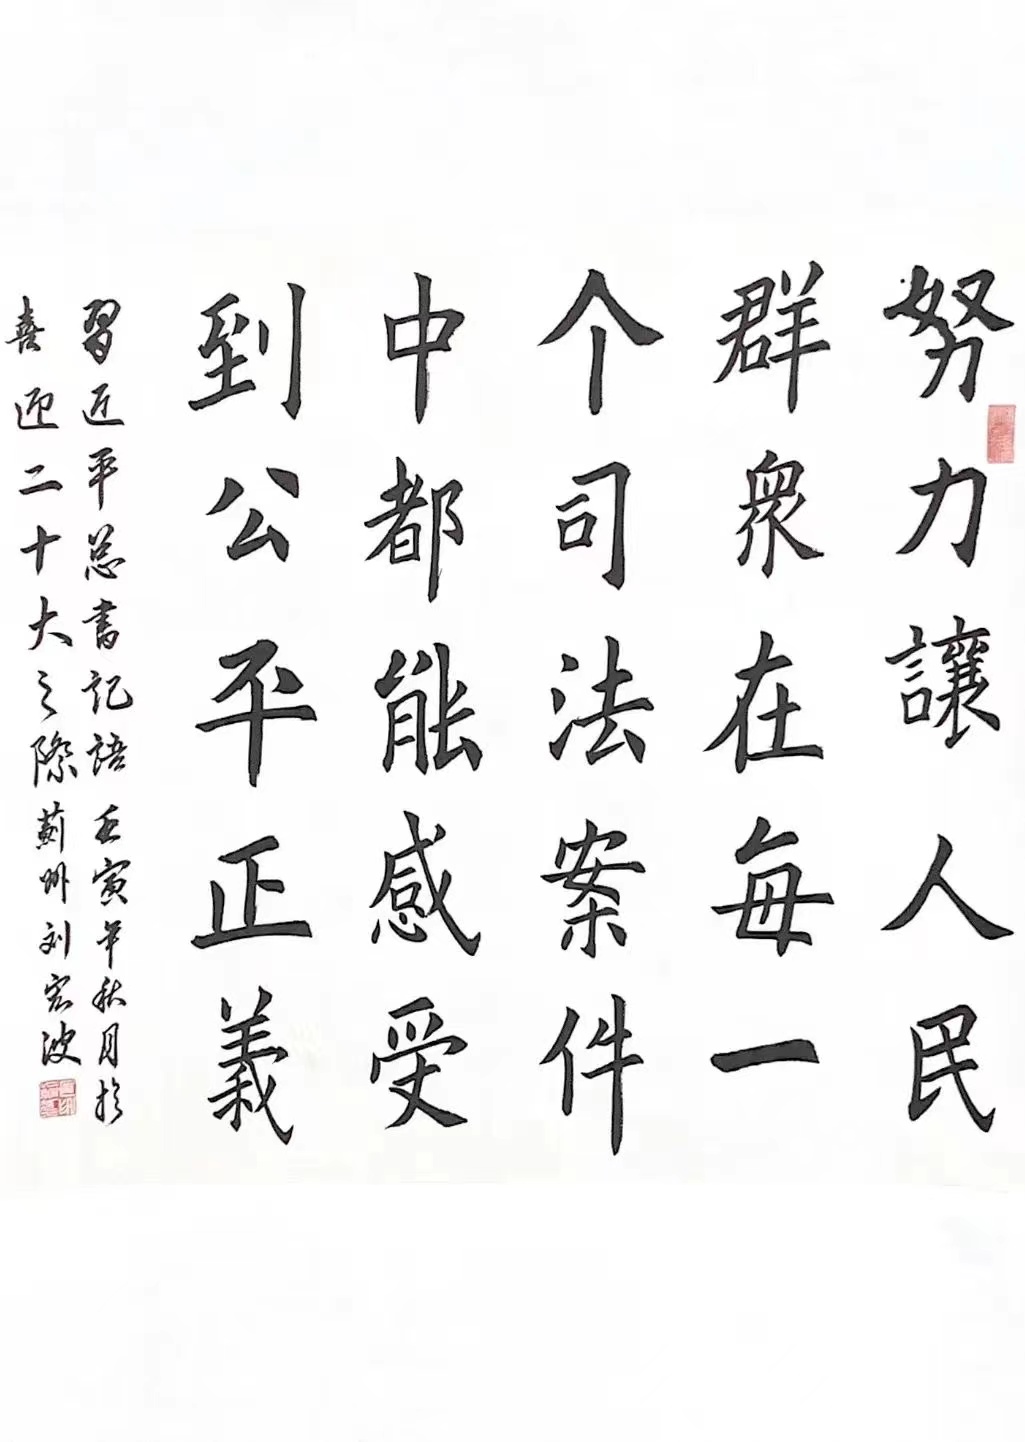 努力讓人民
群衆在每一
个司法案件
中都能感受
到公平正義
習近平总書記語壬寅年秋月於
喜迎二十大之際薊州刘宏波